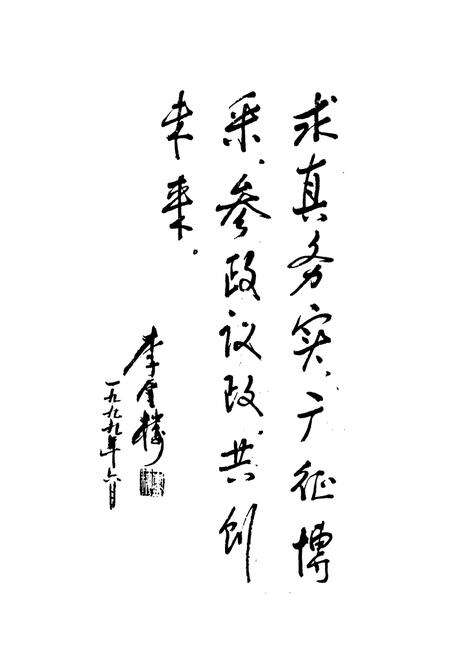 求真务实、广征博
采、参政议政、共创
未来。
李
一九九九年六月